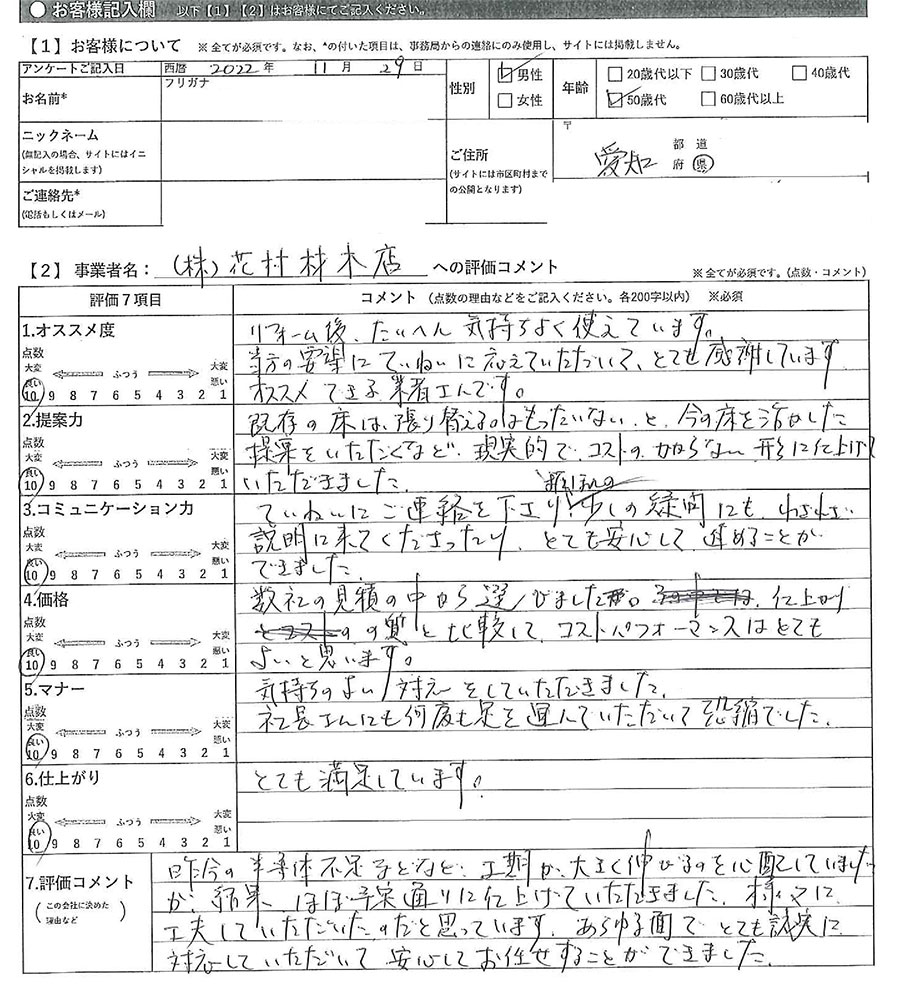 ● お客様記入欄 以下【1】【2】はお客様にてご記入ください。
【1】お客様について ※全てが必須です。なお、*の付いた項目は、事務局からの連絡にのみ使用し、サイトには掲載しません。
アンケートご記入日 西暦 2022年 11月 29日
性別 男性 女性
年齢 20歳代以下 30歳代 40歳代
50歳代 60歳代以上
お名前* フリガナ
ニックネーム
(無記入の場合、サイトにはイニ
シャルを掲載します)
ご連絡先*
(電話もしくはメール)
ご住所
(サイトには市区町村まで
の公開となります)
〒
愛知 都 道 府 県
【2】事業者名: (株)花村材木店 への評価コメント ※全てが必須です。(点数・コメント)
評価7項目 コメント (点数の理由などをご記入ください。各200字以内) ※必須
1.オススメ度
点数
大変 ふつう 大変
良い 悪い
10 9 8 7 6 5 4 3 2 1
リフォーム後、たいへん気持ちよく使えています。
当方の要望にていねいに応えていただいて、とても感謝しています
オススメできる業者さんです。
2.提案力
点数
大変 ふつう 大変
良い 悪い
10 9 8 7 6 5 4 3 2 1
既存の床は、張り替えるのはもったいない、と、今の床を活かした
提案をいただくなど、現実的で、コストのかからない形に仕上げて
いただきました。
3.コミュニケーション力
点数
大変 ふつう 大変
良い 悪い
10 9 8 7 6 5 4 3 2 1
ていねいにご連絡を下さり、少しの疑問にも、わざわざ
説明に来てくださったり、とても安心して進めることが
できました。
4.価格
点数
大変 ふつう 大変
良い 悪い
10 9 8 7 6 5 4 3 2 1
数社の見積の中から選びました。仕上がり
の質と比較して、コストパフォーマンスはとても
よいと思います。
5.マナー
点数
大変 ふつう 大変
良い 悪い
10 9 8 7 6 5 4 3 2 1
気持ちのよい対応をしていただきました。
社長さんにも何度も足を運んでいただいて恐縮でした。
6.仕上がり
点数
大変 ふつう 大変
良い 悪い
10 9 8 7 6 5 4 3 2 1
とても満足しています。
7.評価コメント
(この会社に決めた
理由など)
昨今の半導体不足などなど、工期が大きく伸びるのを心配していました
が、結果、ほぼ予定通りに仕上げていただきました。様々に
工夫していただいたのだと思っています。あらゆる面でとても誠実に
対応していただいて安心してお任せすることができました。